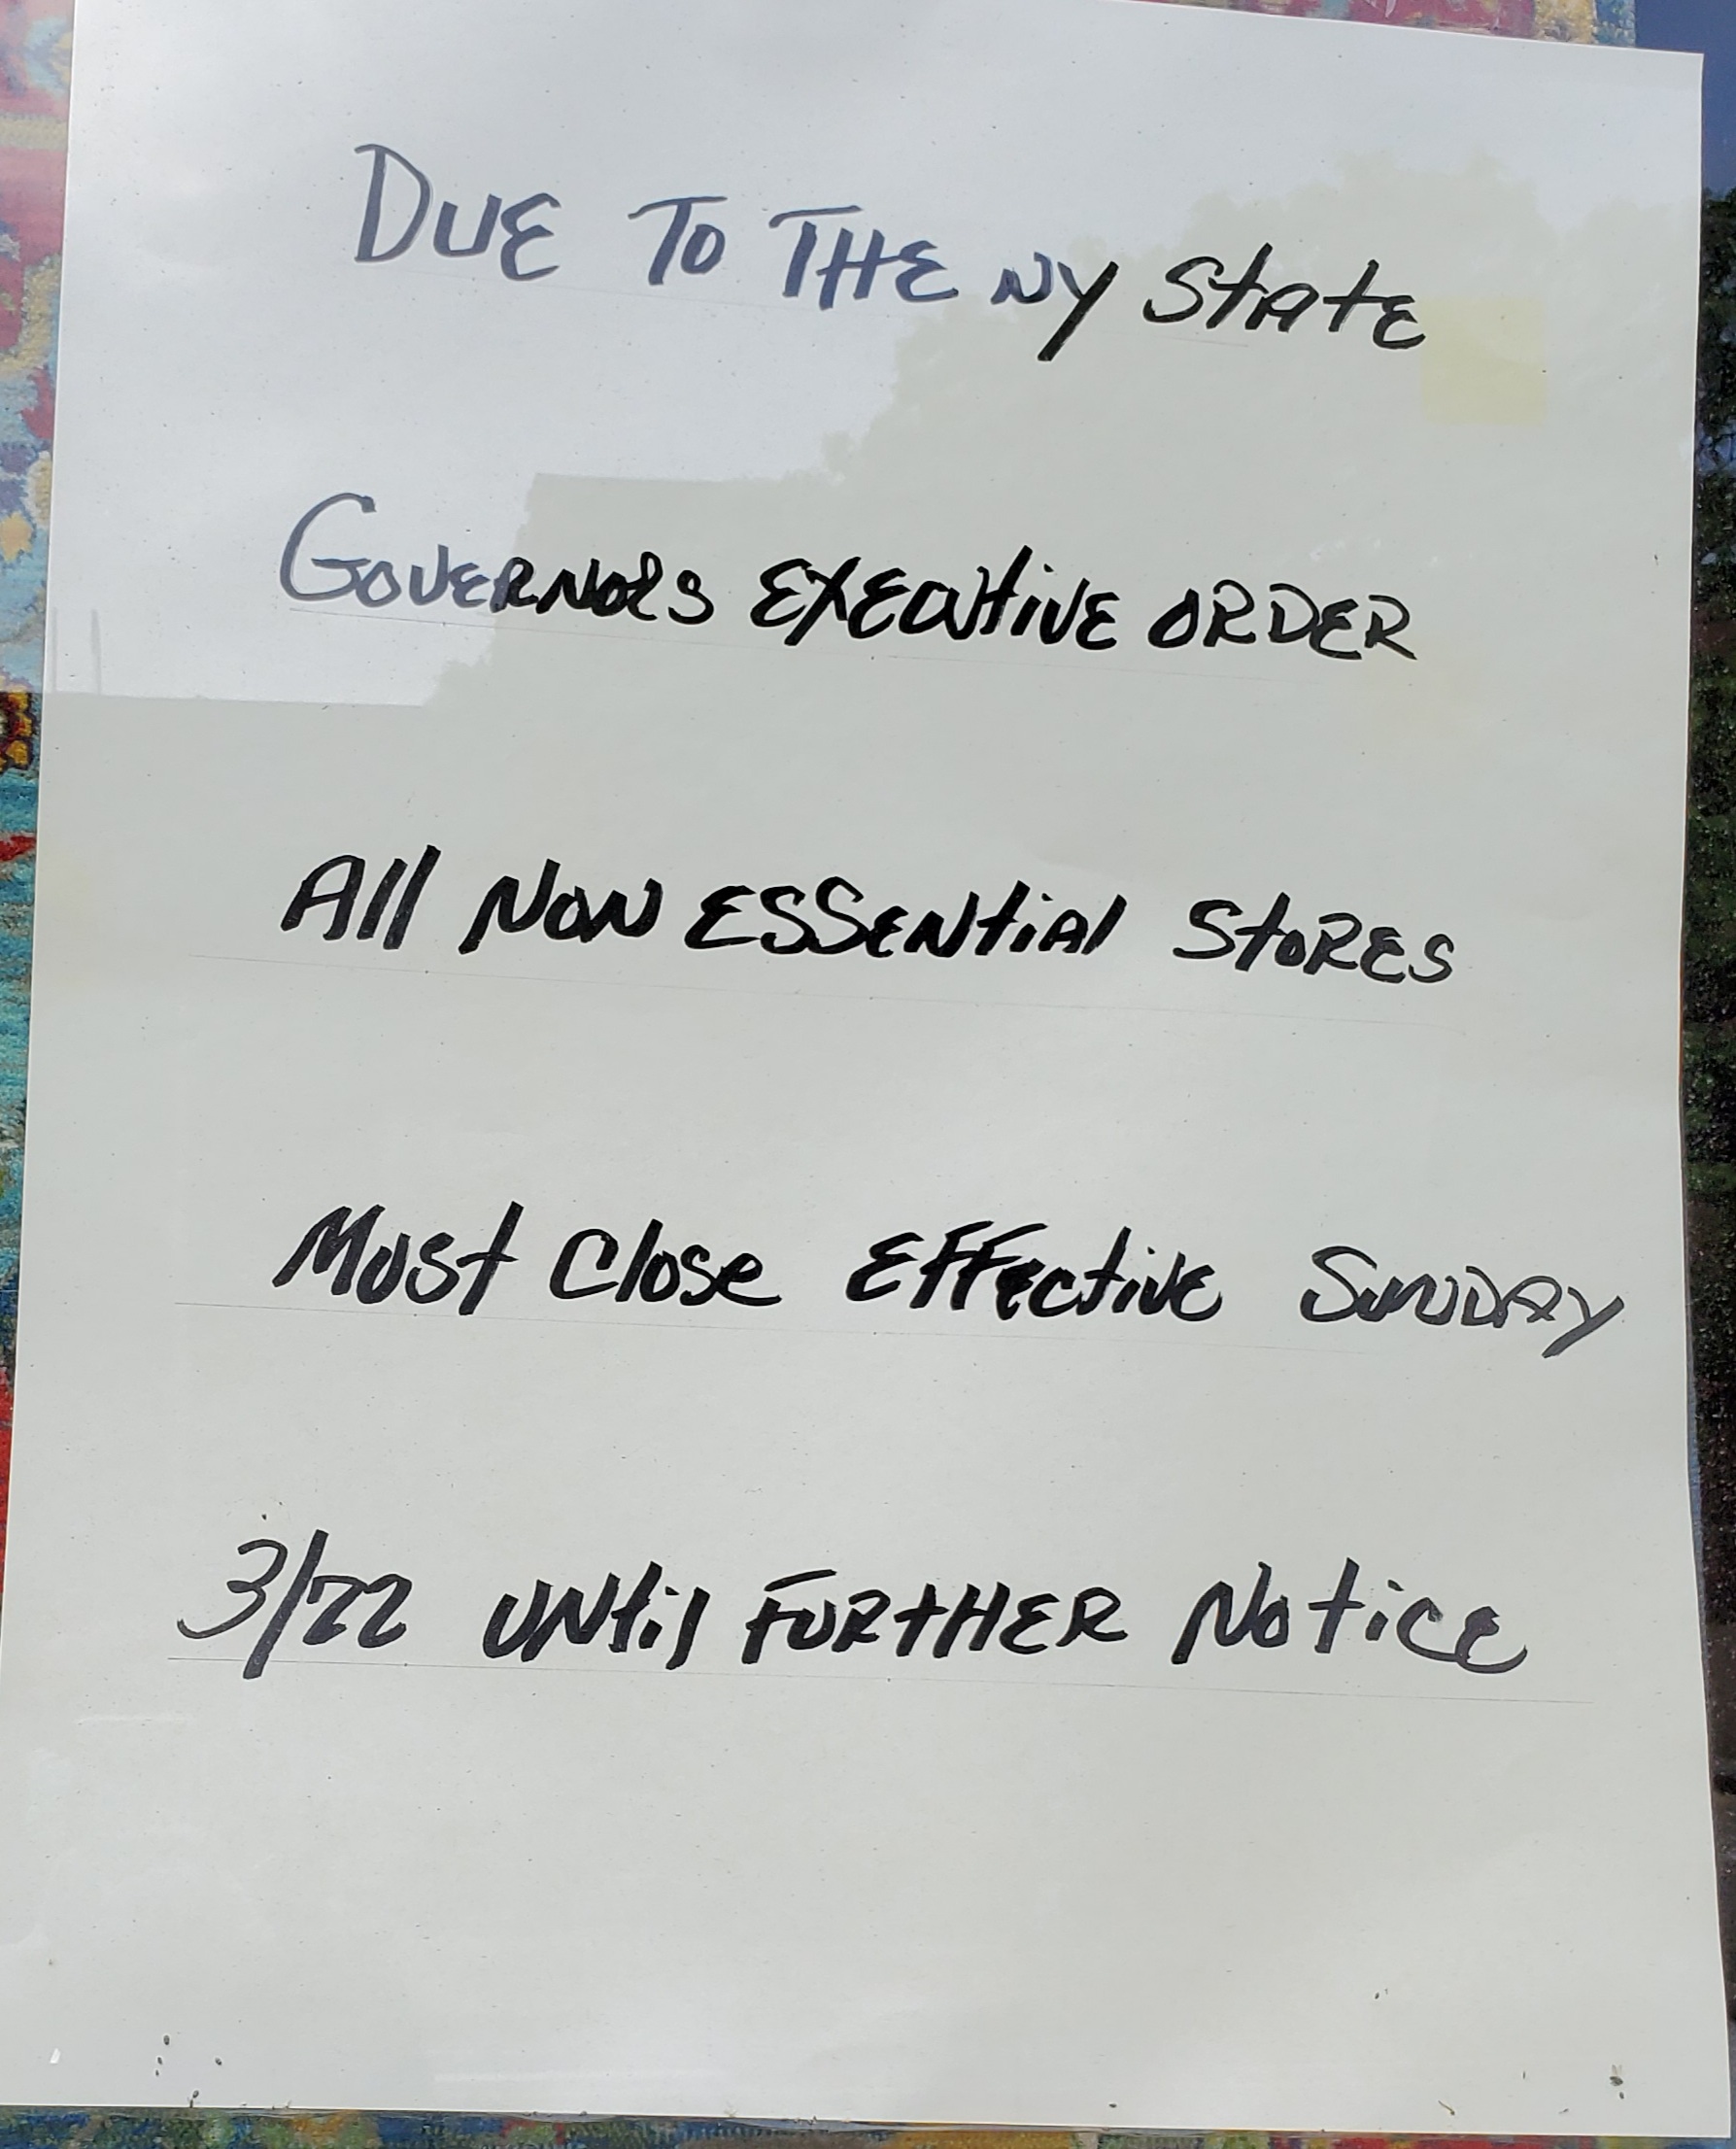 DUE TO THE NY StAtE
GOVERNORS EXECUtiVE ORDER
All NON ESSENtiAl StORES
Must Close EffEctivE SUNDAY
3/22 UNtil FURtHER NoticE